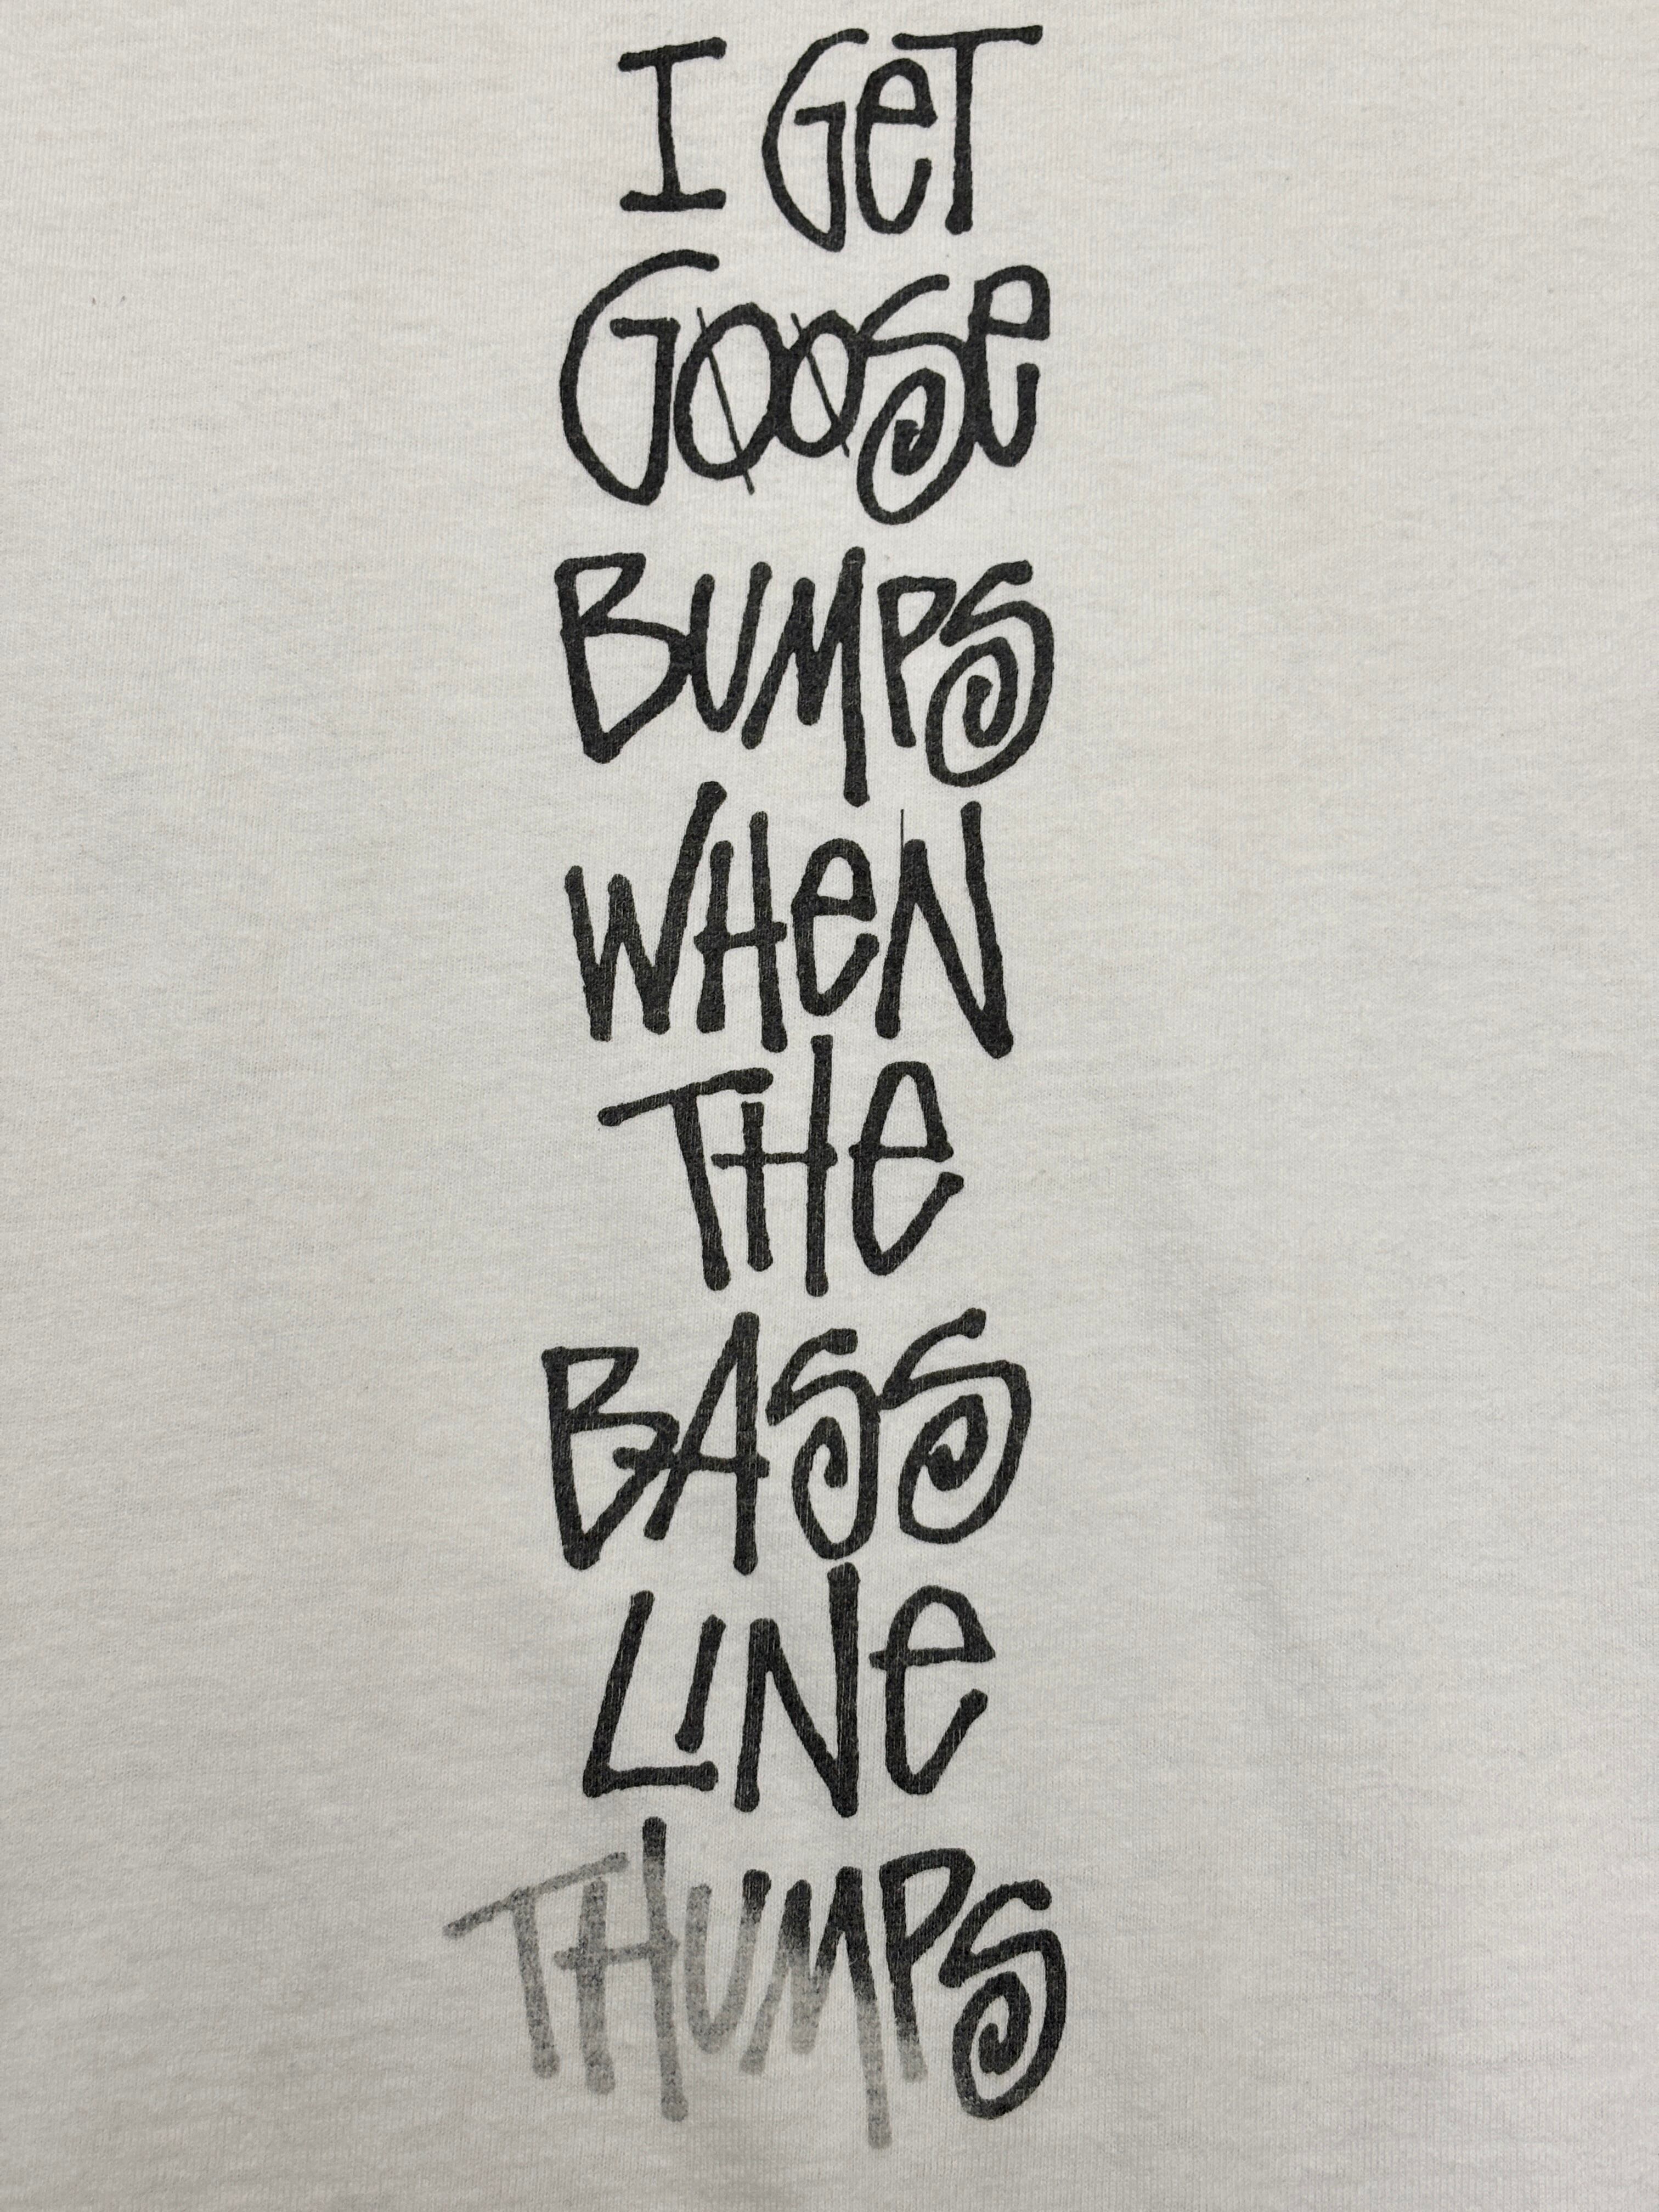 I GeT
GOOSe
BUMPS
WHeN
THe
BASS
LINe
THUMPS